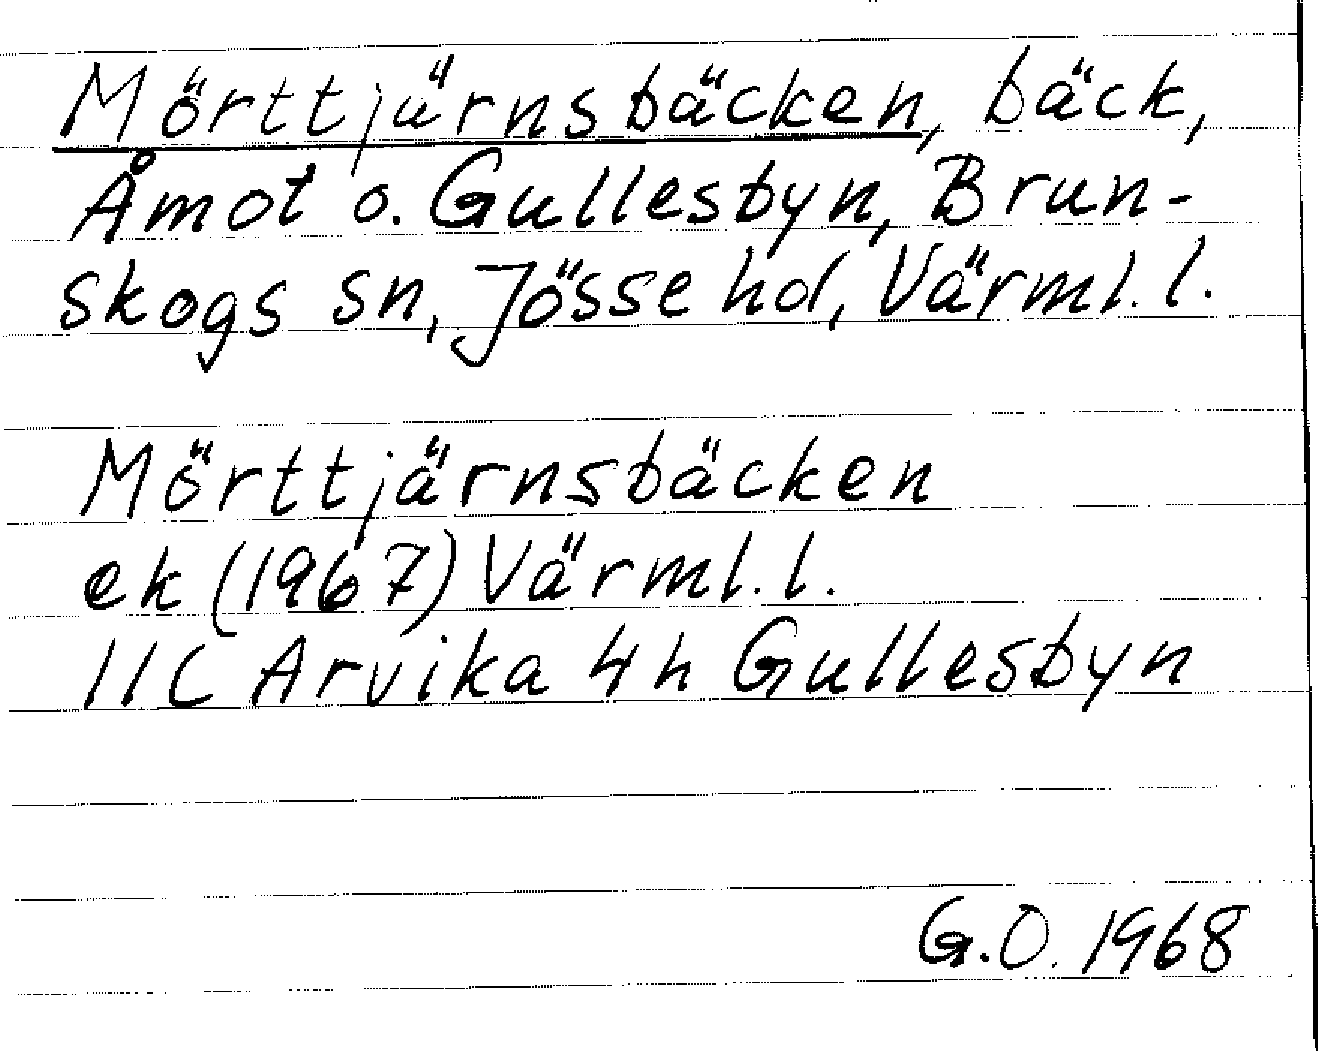 Mörttjärnsbäcken, bäck,
Åmot o. Gullesbyn, Brun-
skogs sn, Jösse hd, Värml. l.
Mörttjärnsbäcken
ek (1967) Värml. l.
11C Arvika 4h Gullesbyn
G.O. 1968